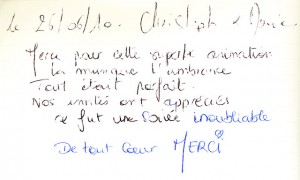 Le 26/06/10. Christoph & Marie.
Merci pour cette superbe animation
La musique l'ambiance
Tout était parfait.
Nos invités ont appréciés
ce fut une soirée inoubliable
De tout Cœur MERCI